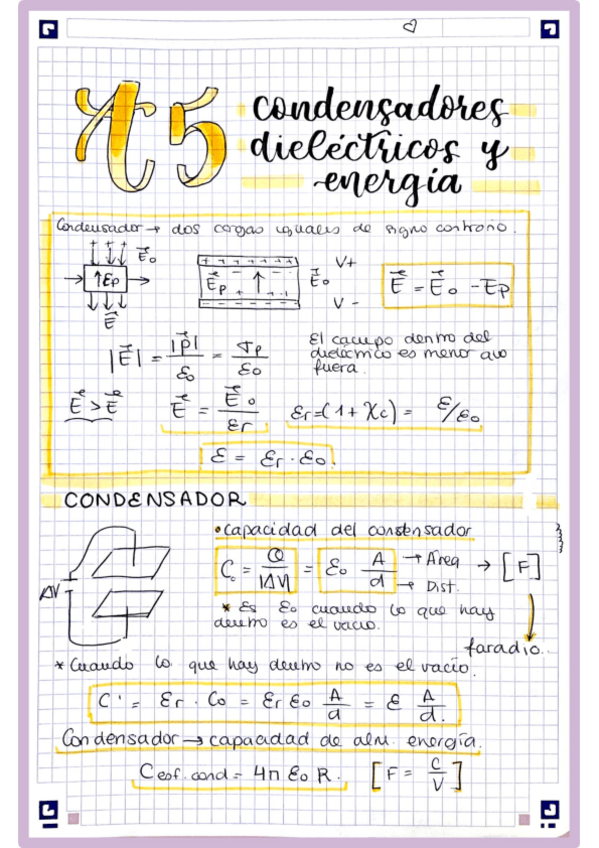 T5
condensadores
dieléctricos y
energía
Condensador → dos cargas iguales de signo contrario.
+ + +
E⃗o
↑Ep
E⃗
+ + + + + + + + +
V+
E⃗p ↑ E⃗o
V -
E⃗ = E⃗o - Ep
|E⃗| = |P⃗|/εo = σp/εo
El campo dentro del
dieléctrico es menor que
fuera.
E⃗ > E⃗
E⃗ = E⃗o/εr
εr = (1 + Xc) = ε/εo
ε = εr · εo.
CONDENSADOR
• capacidad del condensador
ΔV
Co = Q/|ΔV| = εo A/d → Área → [F]
→ Dist.
* Es εo cuando lo que hay
dentro es el vacío.
faradio.
* Cuando lo que hay dentro no es el vacío.
C' = εr · Co = εr εo A/d = ε A/d.
Condensador → capacidad de alm. energía.
C esf. cond = 4π εo R. [F = C/V]